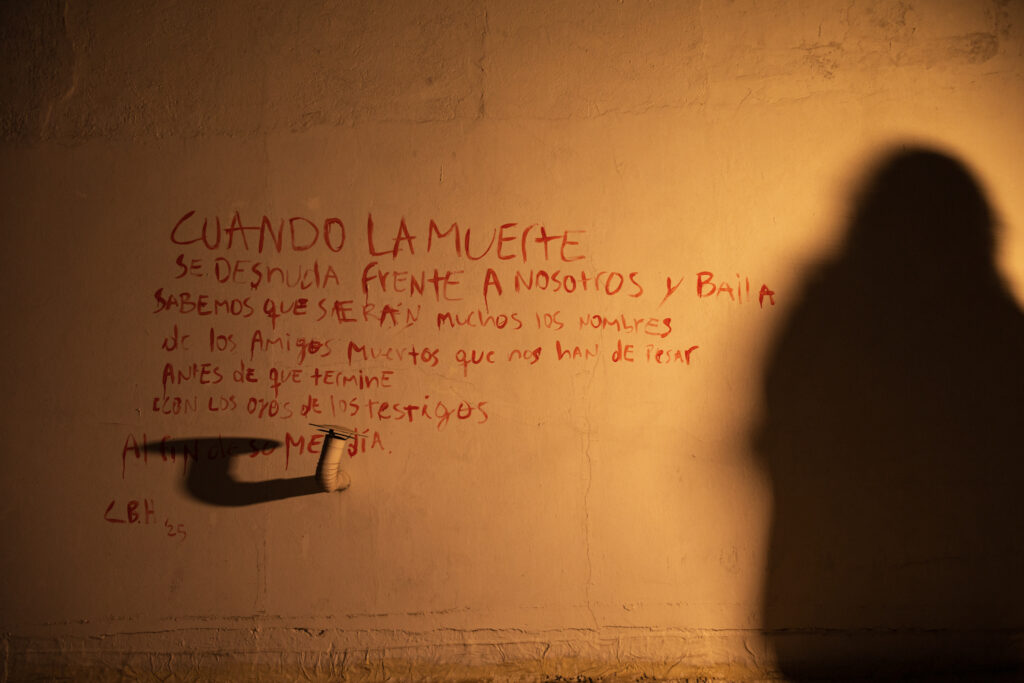 CUANDO LA MUERTE
SE DESNUDA FRENTE A NOSOTROS Y BAILA
SABEMOS QUE SAERÁN MUCHOS LOS NOMBRES
de los AmigoS MUERTOS que nos HAN DE PESAR
ANTES DE QUE TERMINE
CON LOS OJOS DE LOS TESTIGOS
Al FIN de
C.B.H
'25